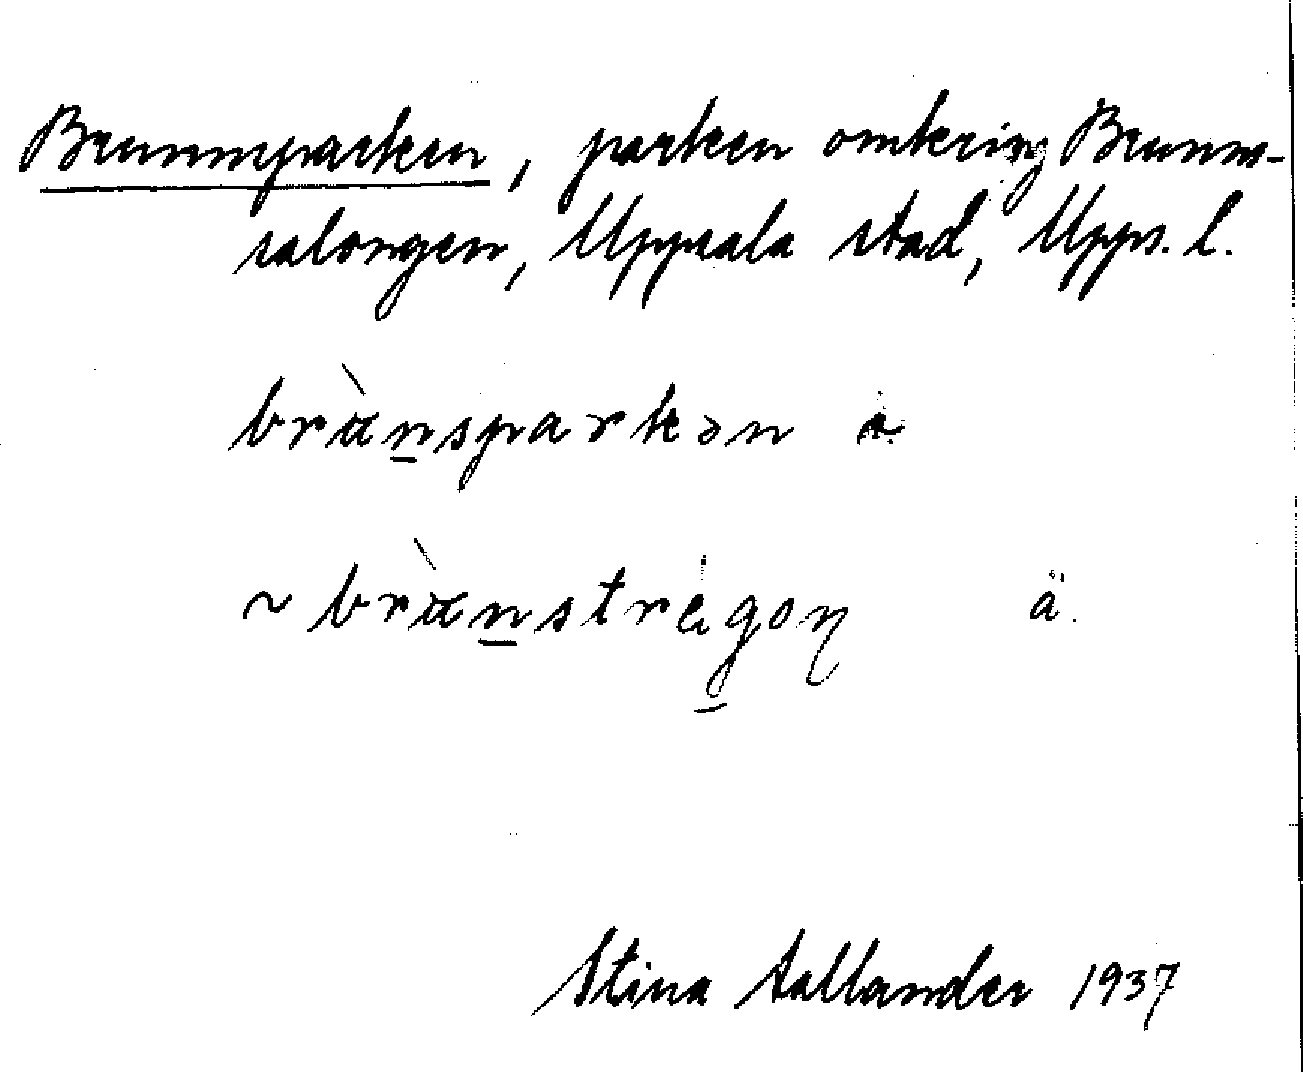 Brunnsparken, parken omkring Brunns-
salongen, Uppsala stad, Upps. l.
brànsparkən
~ brànstrégoꞑ ä.
Stina 1937